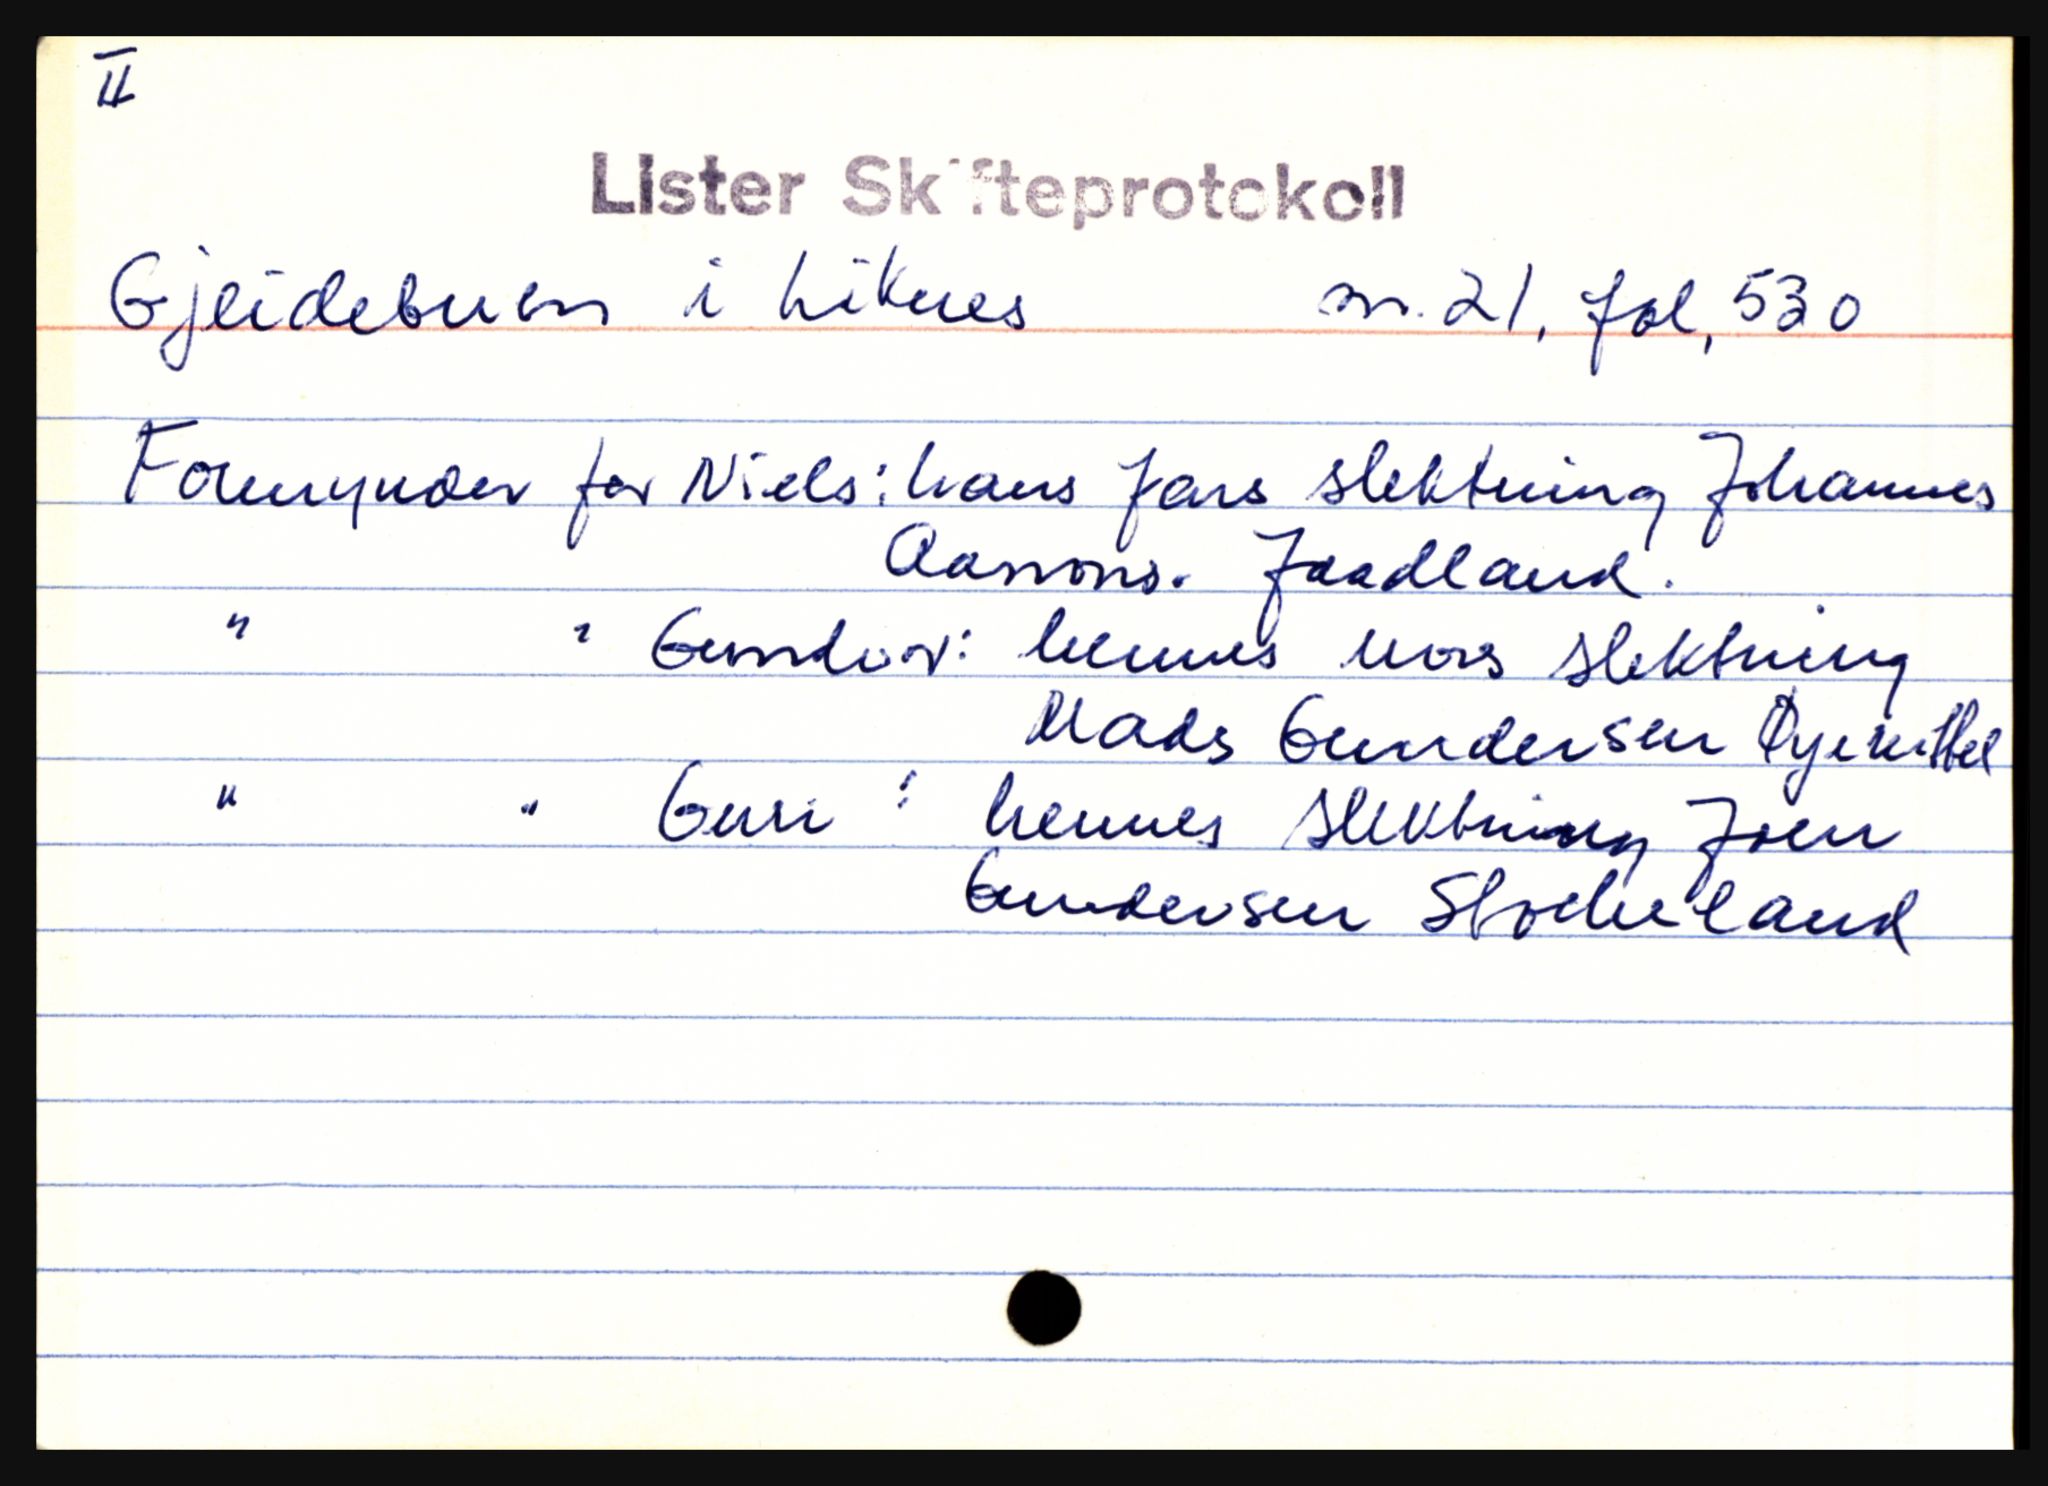 II
Lister Skifteprotokoll
Gjeidebuen i Liknes nr. 21, fol, 530
Formynder for Niels: hans fars slektning Johannes
Aanons. Jaadland.
" " Gundvor: hennes mors slektning
Mads Gundersen
" " Guri : hennes slektning Joen
Gundersen Stocheland